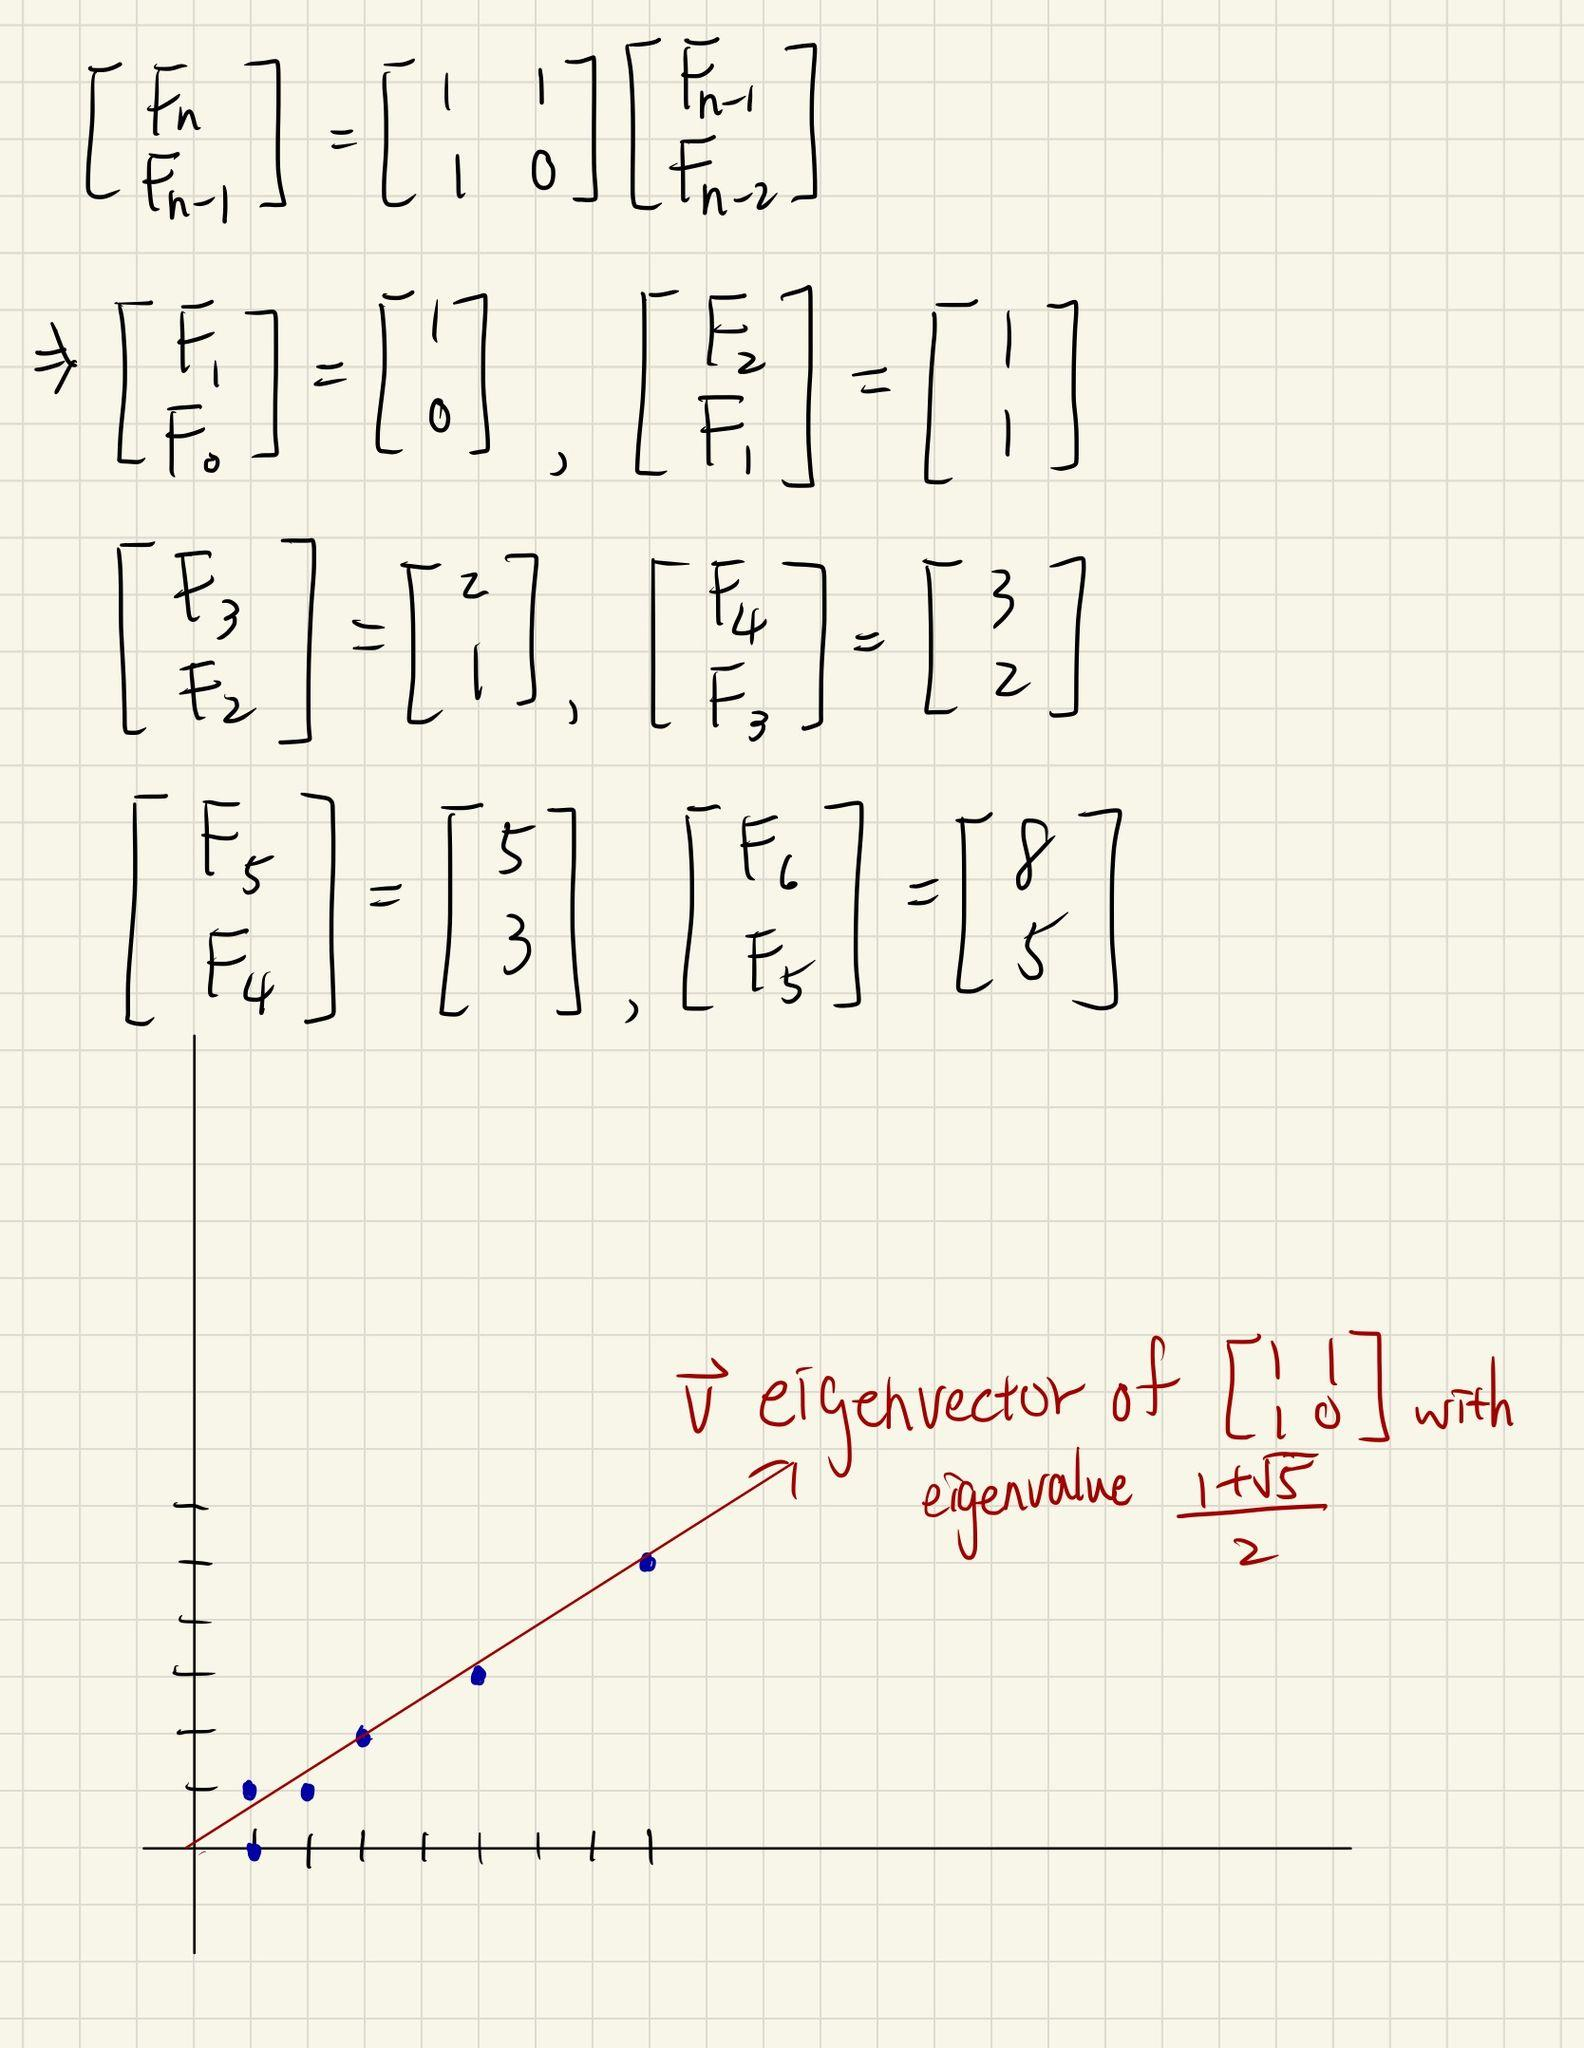 [F_n; F_{n-1}] = [1 1; 1 0] [F_{n-1}; F_{n-2}]
⇒ [F_1; F_0] = [1; 0], [F_2; F_1] = [1; 1]
[F_3; F_2] = [2; 1], [F_4; F_3] = [3; 2]
[F_5; F_4] = [5; 3], [F_6; F_5] = [8; 5]
v⃗ eigenvector of [1 1; 1 0] with
eigenvalue (1+√5)/2